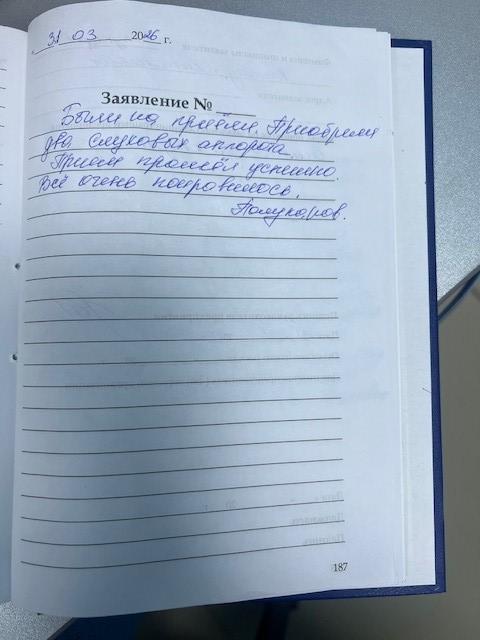 31 03 2026 г.
Заявление №
Были на приёме. Приобрели
два слуховых аппарата
Прием прошёл успешно.
Всё очень понравилось.
187